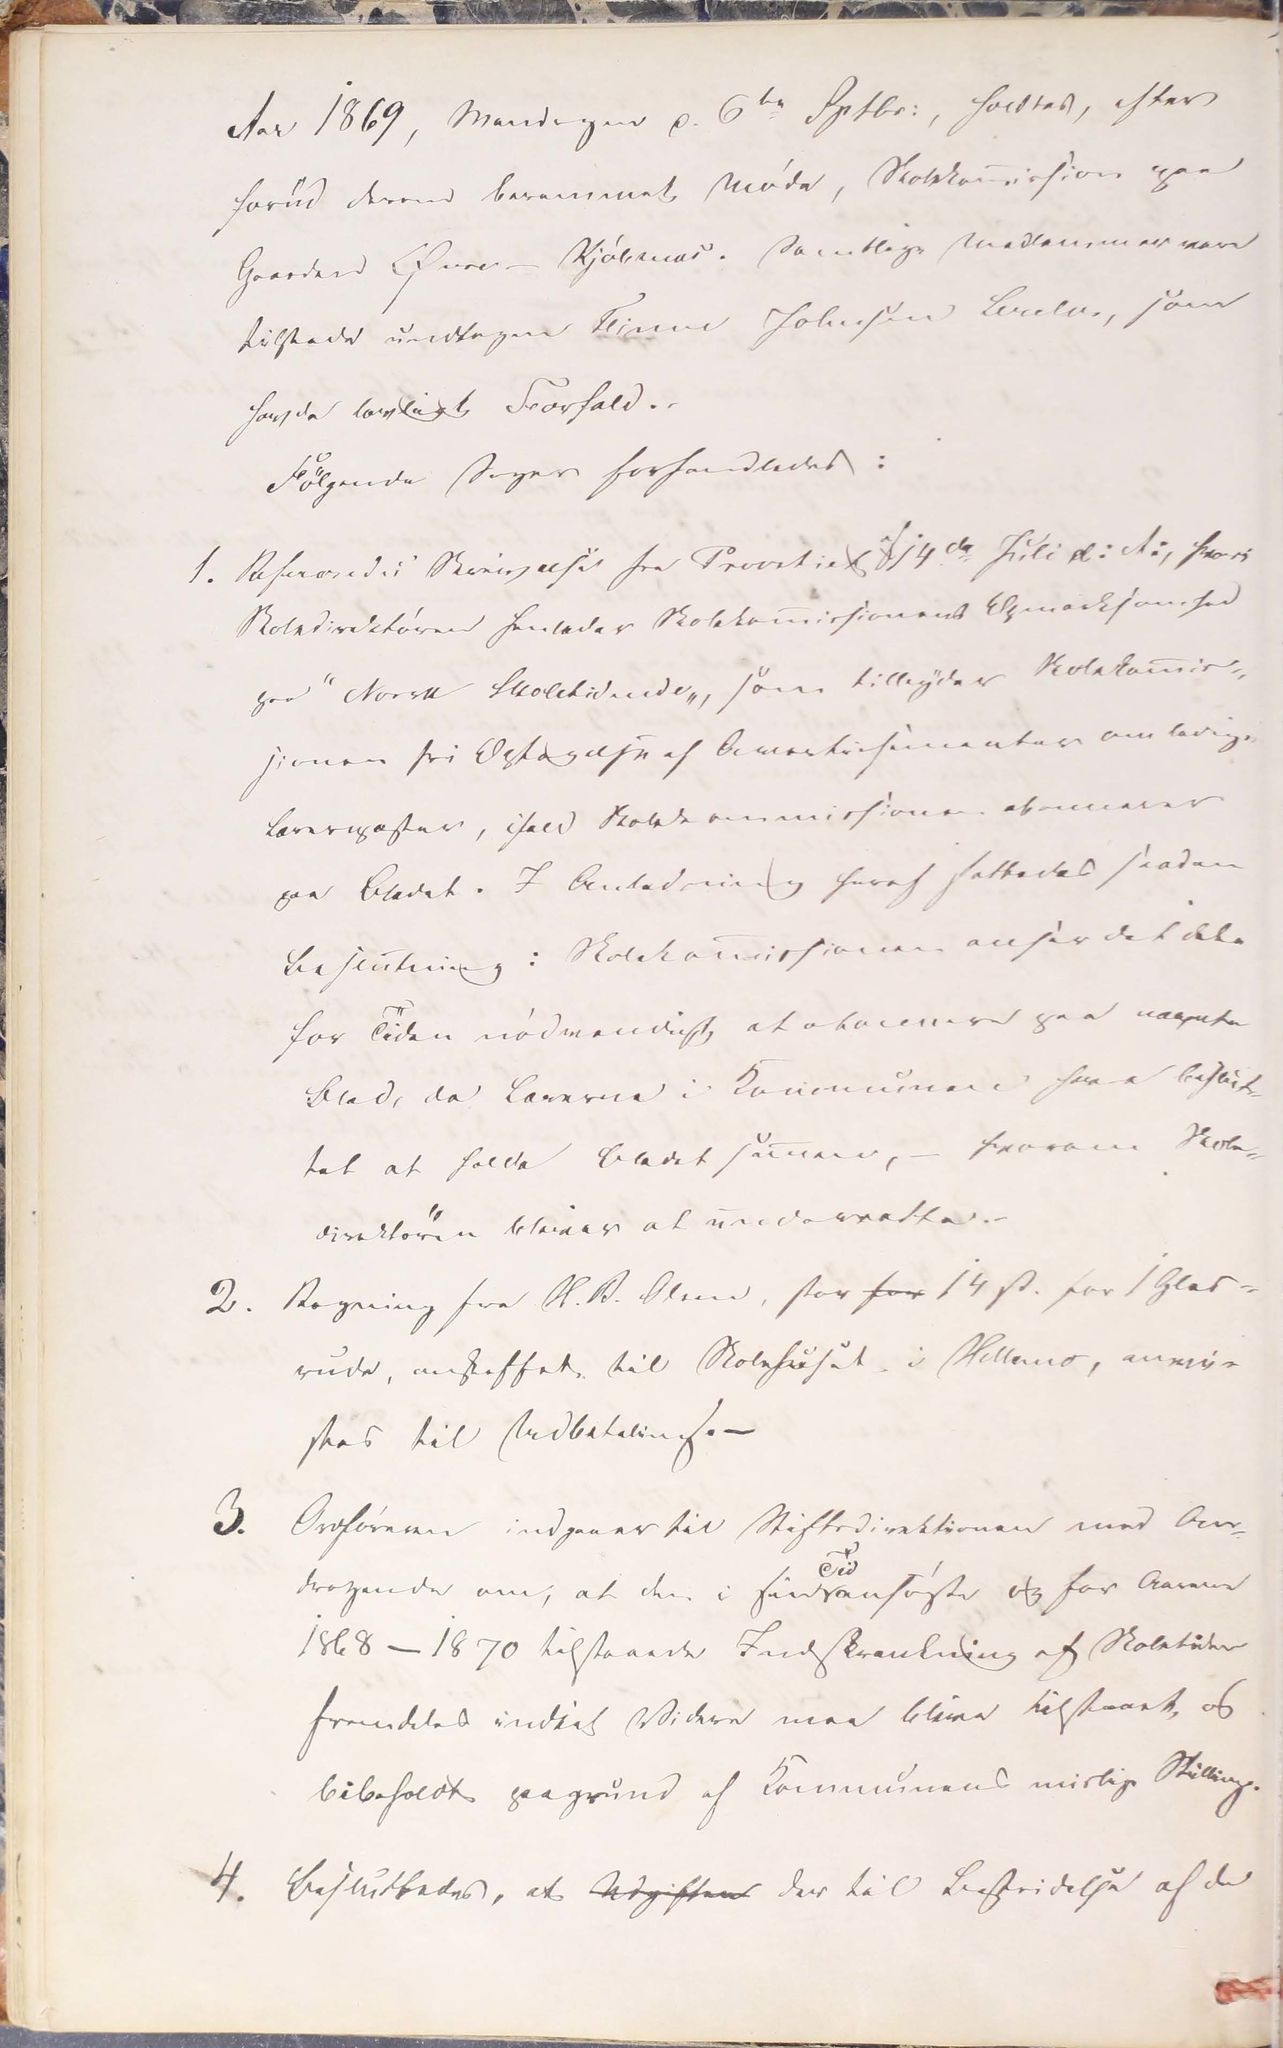 Aar 1869, Mandagen d. 6te Sptbr:, holdtes, efter
forud derom berammet Möde, Skolekom̅ission paa
Gaarden Øvre-Kjölnæs. Samtlige Medlemmer vare
tilstede undtagen Johnsen, som
havde lovligt Forfald..
Fölgende Sager forhandledes:
1. Refereredes Skrivelse fra Provstiet af 14de Juli d: A:, hvori
Skoledirektören henleder Skolekom̅issionens Opmærksomhed
paa "Norsk Skoletidende", som tilbyder Skolekom̅is-
sionen fri Optagelse af Avertissementer om ledige
Lærerposter, ifald Skolekommissionen abonnerer
paa Bladet. I Anledning heraf fattedes saadan
Beslutning: Skolekom̅issionen anser det ikke
for Tiden nödvendigt at abonnere paa nævnte
Blad, da Lærerne i Kommunen have beslut-
tet at holde Bladet sammen, - hvorom Skole-
direktören bliver at underrette.-
2. Regning fra H. R. Olsen, stor for 14 ß. for 1 Glas-
rude, anskaffet til Skolehuset i , anvi-
stes til Udbetaling.-
3. Ordföreren indgaaer til Stiftsdirektionen med An-
dragende om, at den i sin Tid ansögte og for Aarene
1868-1870 tilstaaede Indskrænkning af Skoletiden
fremdeles indtil Videre maa blive tilstaaet og
bibeholdt paagrund af Kommunens mislige Stilling.
4. Besluttedes, at Udgiften der til Bestridelse af de